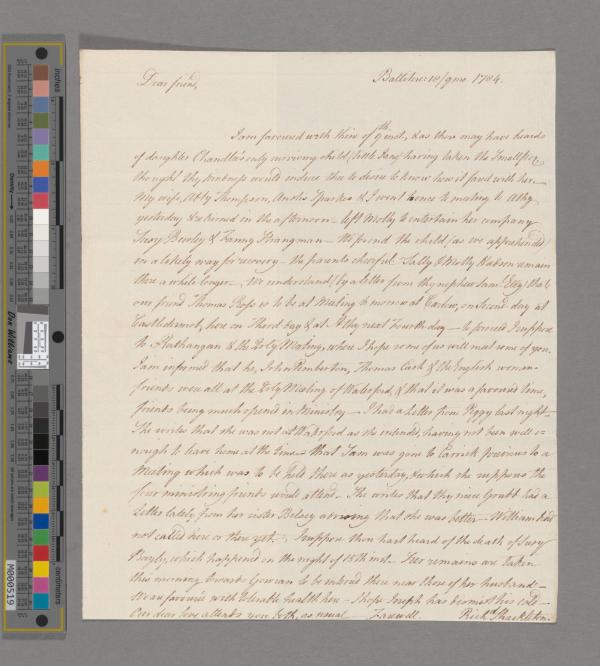 Ballitore: 18/9mo 1784.
Dear friend,
I am favoured with thine of 9th inst, & as thou may have heard
of daughter Chandlee's only surviving child (little Jane) having taken the Smallpox
thought thy kindness would induce thee to desire to know how it fared with her
My wife, Abby Thompson, Sparks & I went hence to meeting to Athy
yesterday & returned in the afternoon – left Molly to entertain her company
Susy Bewley & Fanny Strangman – We found the child (as we apprehended)
in a likely way for recovery – the parents cheerful. Sally & Molly Hudson remain
there a while longer – We understand (by a letter from thy nephew that
our friend Thomas Ross is to be at Meeting to morrow at Carlow, on Second-day at
Castledermot, here on Third day & at Athy next Fourth day – to proceed I suppose
to Rathangan & the Meeting, where I hope some of us will meet some of you.
I am informed that he, John Pemberton, Thomas Cash & the English women-
friends were all at the Meeting of Waterford, & that it was a favoured time,
friends being much opened in Ministry – I had a letter from Peggy last night –
She writes that she was not at Waterford as she intended, having not been well e-
nough to leave home at the time – that Sam was gone to Carrick previous to a
Meeting which was to be held there as yesterday, & which she supposes the
four ministring friends would attend. She writes that thy niece Grubb had a
Letter lately from her sister Betsey that she was better – William had
not called here or there yet. I suppose thou hast heard of the death of Susy
Bayly, which happened on the night of 15th inst. Her remains are taken
this morning towards Gowran to be interred there near those of her husband –
We are favoured with tolerable health here – I hope Joseph has dismist his cold –
Our dear love attends you both, as usual – Farewell. Richd Shackleton.
inches
centimeters
Don Williams
M000519